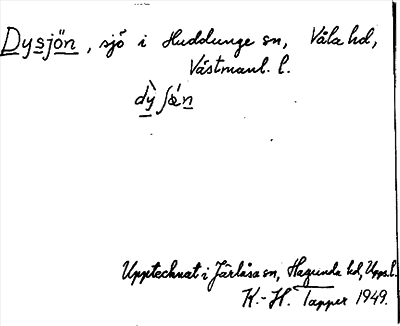 Dysjön, sjö i Huddunge sn, Våla hd,
Västmanl. l.
dỳʃǿn
Upptecknat i Järlåsa sn, Hagunda hd, Upps. l.
K.-H. Tapper 1949.